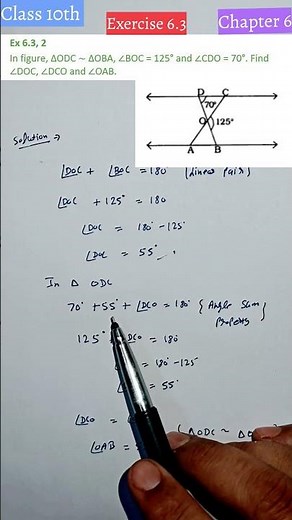 Class 10th
Exercise 6.3
Chapter 6
Ex 6.3, 2
In figure, ΔODC ~ ΔOBA, ∠BOC = 125° and ∠CDO = 70°. Find
∠DOC, ∠DCO and ∠OAB.
D C
70°
O 125°
A B
Solution →
∠DOC + ∠BOC = 180° (Linear Pair)
∠DOC + 125° = 180
∠DOC = 180° - 125°
∠DOC = 55°
In Δ ODC
70° + 55° + ∠DCO = 180° { Angle Sum
Property
125° DCO = 180°
= 180 - 125
= 55°
∠DCO =
∠OAB = ( ΔODC ~ Δ